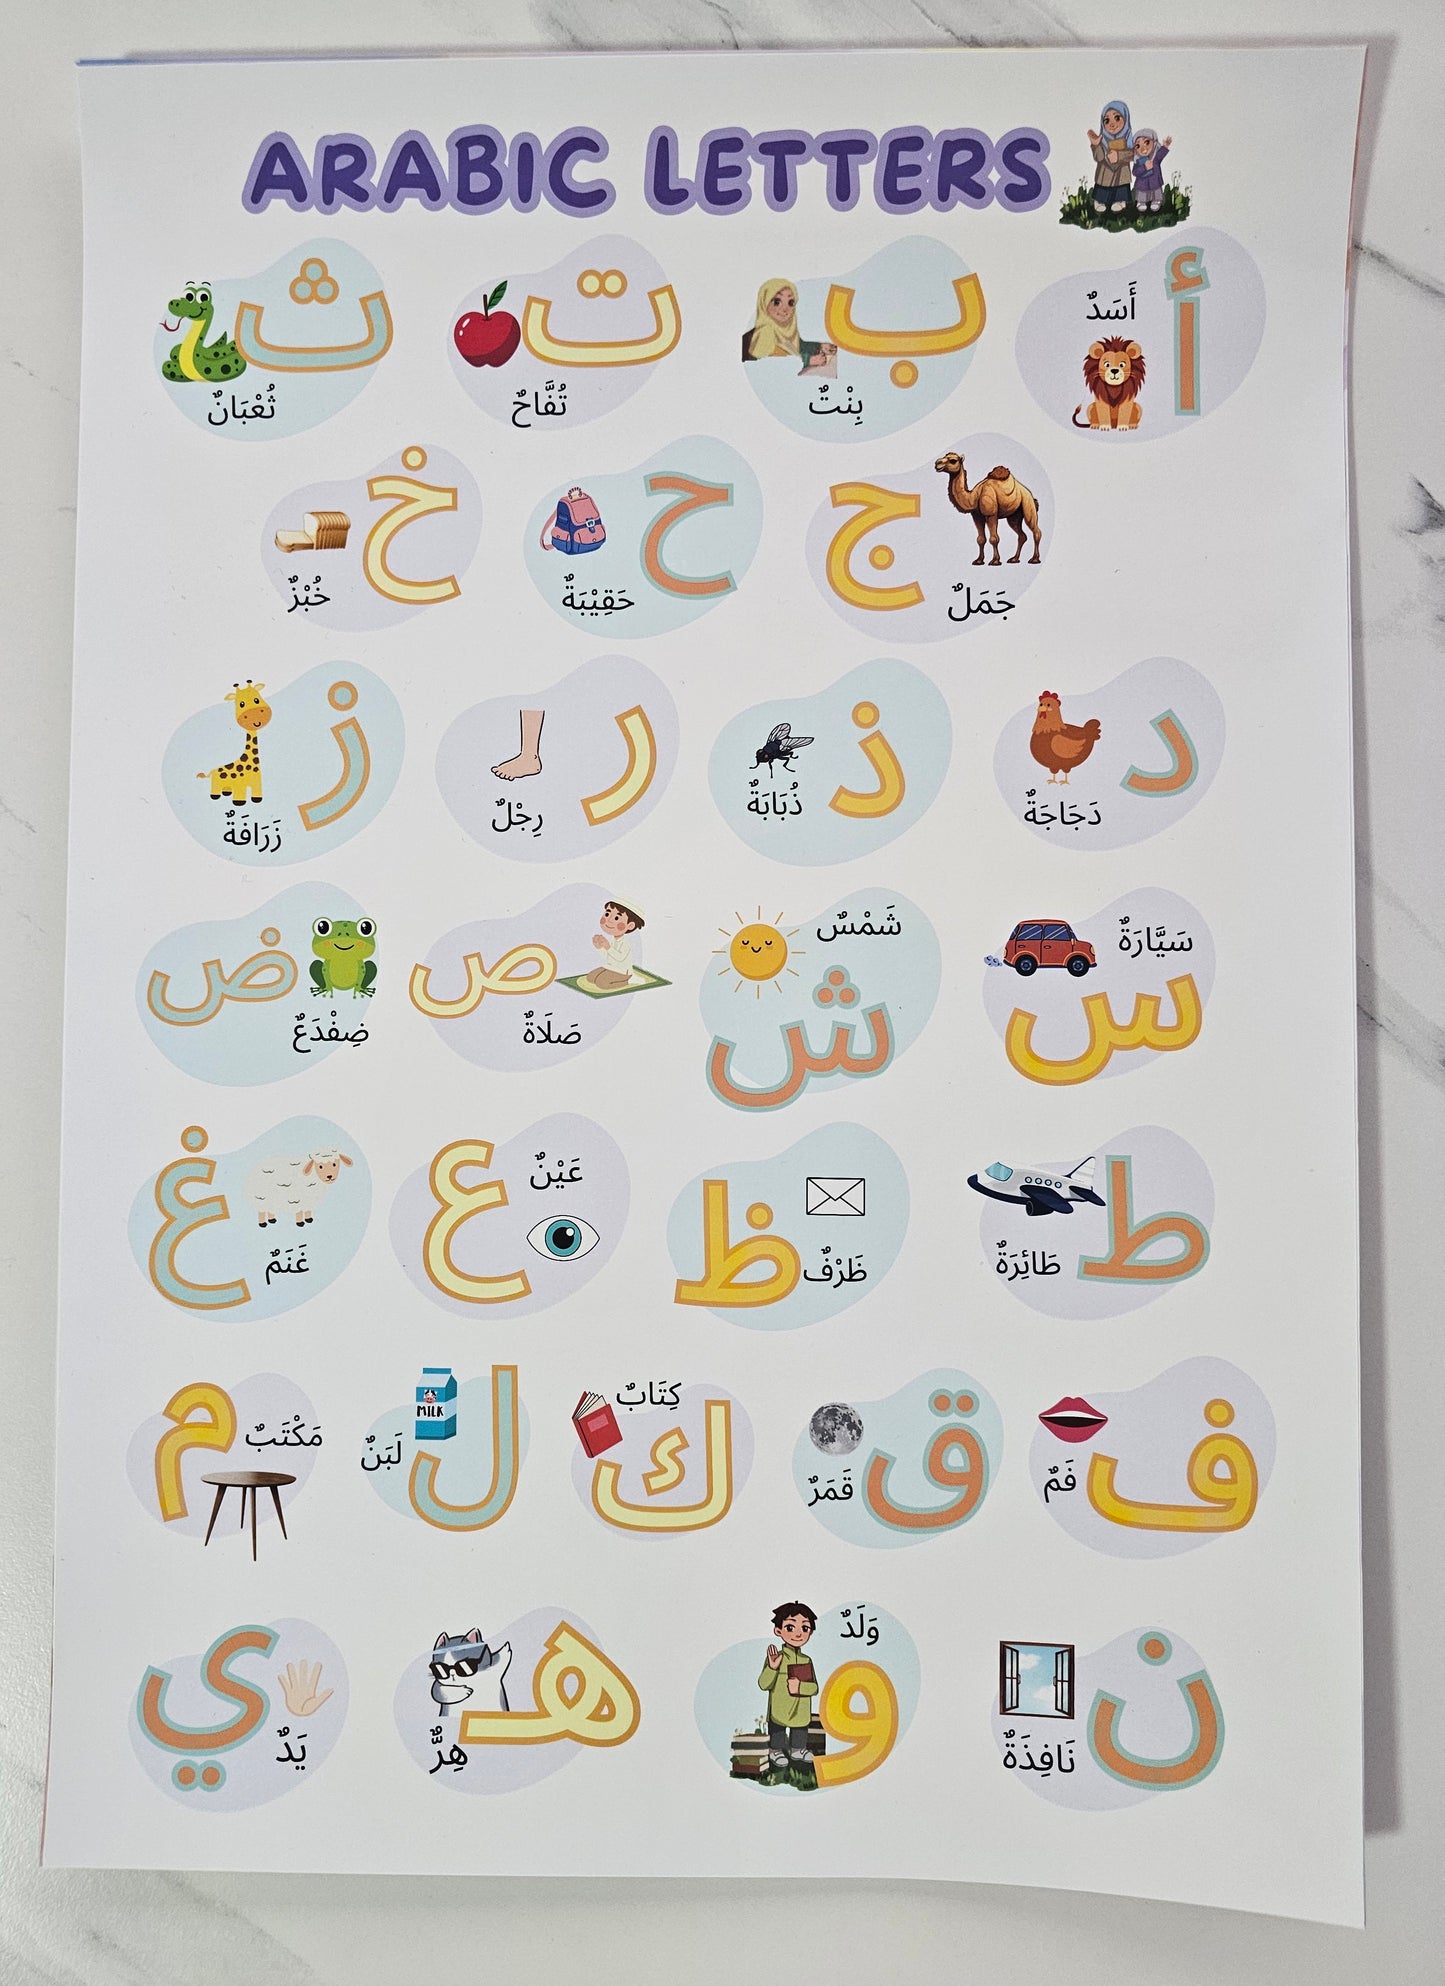 ARABIC LETTERS
أ أَسَدٌ
ب بِنْتٌ
ت تُفَّاحٌ
ث ثُعْبَانٌ
ج جَمَلٌ
ح حَقِيْبَةٌ
خ خُبْزٌ
د دَجَاجَةٌ
ذ ذُبَابَةٌ
ر رِجْلٌ
ز زَرَافَةٌ
س سَيَّارَةٌ
ش شَمْسٌ
ص صَلَاةٌ
ض ضِفْدَعٌ
ط طَائِرَةٌ
ظ ظَرْفٌ
ع عَيْنٌ
غ غَنَمٌ
ف فَمٌ
ق قَمَرٌ
ك كِتَابٌ
ل لَبَنٌ
MILK
م مَكْتَبٌ
ن نَافِذَةٌ
و وَلَدٌ
هـ هِرٌّ
ي يَدٌ